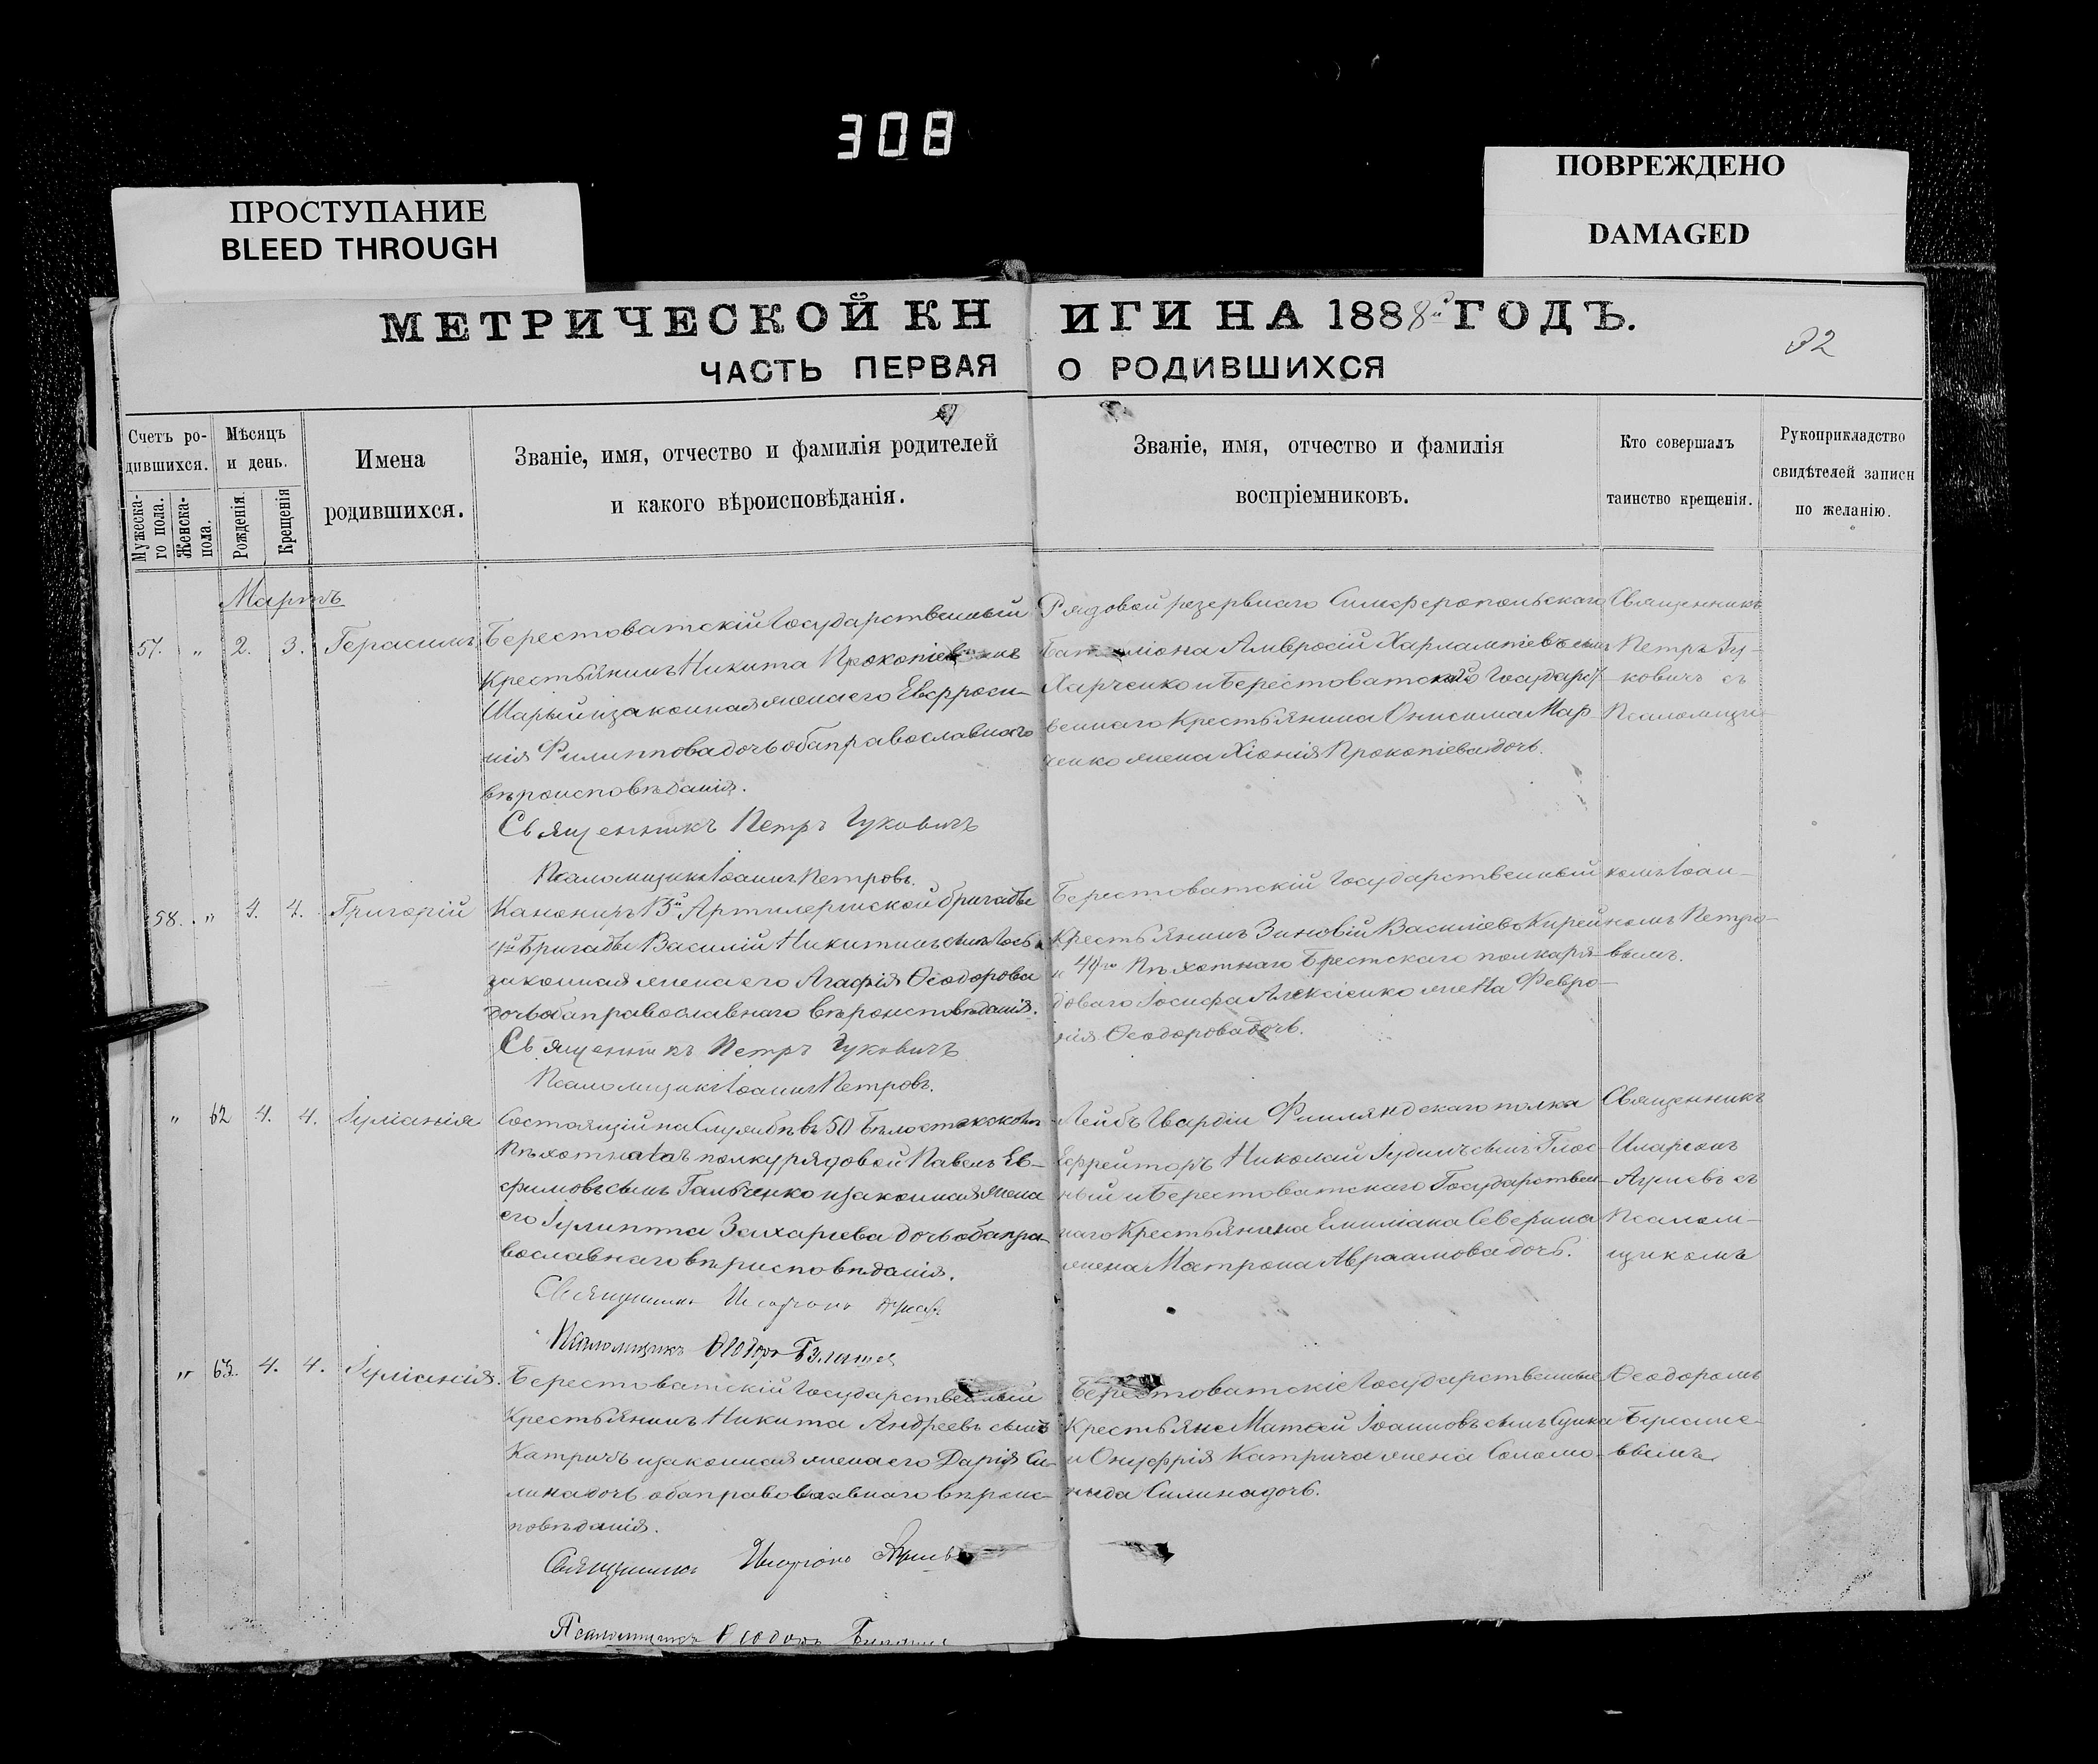 308
ПРОСТУПАНИЕ
BLEED THROUGH
ПОВРЕЖДЕНО
DAMAGED
МЕТРИЧЕСКОЙ КНИГИ НА 1888й ГОДЪ.
32
ЧАСТЬ ПЕРВАЯ О РОДИВШИХСЯ
Счетъ ро-
дившихся.
Мужеска-
го пола.
Женска-
пола.
Мѣсяцъ
и день.
Рожденія
Крещенія
Имена
родившихся.
Званіе, имя, отчество и фамилія родителей
и какого вѣроисповѣданія.
Званіе, имя, отчество и фамилія
воспріемниковъ.
Кто совершалъ
таинство крещенія.
Рукоприкладство
свидѣтелей записи
по желанію.
Мартъ
57. " 2. 3. Герасимъ
Берестоватскій Государственный
Крестьянинъ Никита Прокопіевъ
Шарый и законная жена его Евфроси-
нія Филиппова дочь оба православнаго
вѣроисповѣданія.
Священникъ Петръ Гуковичъ
Псаломщикъ Іоаннъ Петровъ.
Рядовой резервнаго Симферопольскаго
Баталіона Амвросій Харлампіевъ сынъ
Харченко и Берестоватскаго Государст-
веннаго Крестьянина Онисима Мар-
ченко жена Хіонія Прокопіева дочь.
Священникъ
Петръ Гу-
ковичъ съ
Псаломщи-
58. " 4. 4. Григорій
Канониръ 13й Артилерійской бригады
4й Бригады Василій Никитинъ сынъ
законная жена его Агафія Ѳеодорова
дочь оба православнаго вѣроисповѣданія.
Священникъ Петръ Гуковичъ
Псаломщикъ Іоаннъ Петровъ.
Берестоватскій Государственный
Крестьянинъ Зиновій Василіевъ Кирей
и 49го Пѣхотнаго Брестскаго полка ря-
доваго Іосифа Алексіенко жена Февро-
нія Ѳеодорова дочь.
комъ Іоан-
номъ Петро-
вымъ.
" 62 4. 4. Іуліанія
Состоящій на Службѣ въ 50 Бѣлостокскомъ
Пѣхотномъ полку рядовой Павелъ Ев-
фимовъ сынъ Гальченко и законная жена
его Іулитта Захаріева дочь оба пра-
вославнаго вѣрисповѣданія.
Священникъ Иларіонъ
Псаломщикъ Ѳеодоръ
Лейбъ Гвардіи Финляндскаго полка
Ефрейторъ Николай Іудинъ сынъ Глос
ный и Берестоватскаго Государствен-
наго Крестьянина Емиліана Северина
жена Матрона Авраамова дочь.
Священникъ
Иларіонъ
съ
Псалом-
щикомъ
" 63. 4. 4. Іуліанія.
Берестоватскій Государственный
Крестьянинъ Никита Андреевъ сынъ
Катричъ и законная жена его Дарія Си-
лина дочь оба православнаго вѣроис-
повѣданія.
Священникъ Иларіонъ
Псаломщикъ Ѳеодоръ
Берестоватскіе Государственные
Крестьяне Матѳей Іоанновъ сынъ Сушка
и Онуфрія Катрича жена Соломо-
нида Силина дочь.
Ѳеодоромъ
вымъ